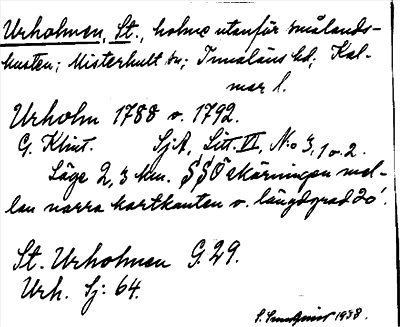 Urholmen, St., holme utanför smålands-
kusten; Misterhult sn; Tunaläns hd; Kal-
mar l.
Urholm 1788 o. 1792.
G. Klint. SjA, Litt. VI, No 3, 1 o. 2.
Läge 2,3 km. SSÖ skärningen mel-
lan norra kartkanten o. längdgrad 20'.
St. Urholmen G. 29.
Urh. Sj: 64.
1938.